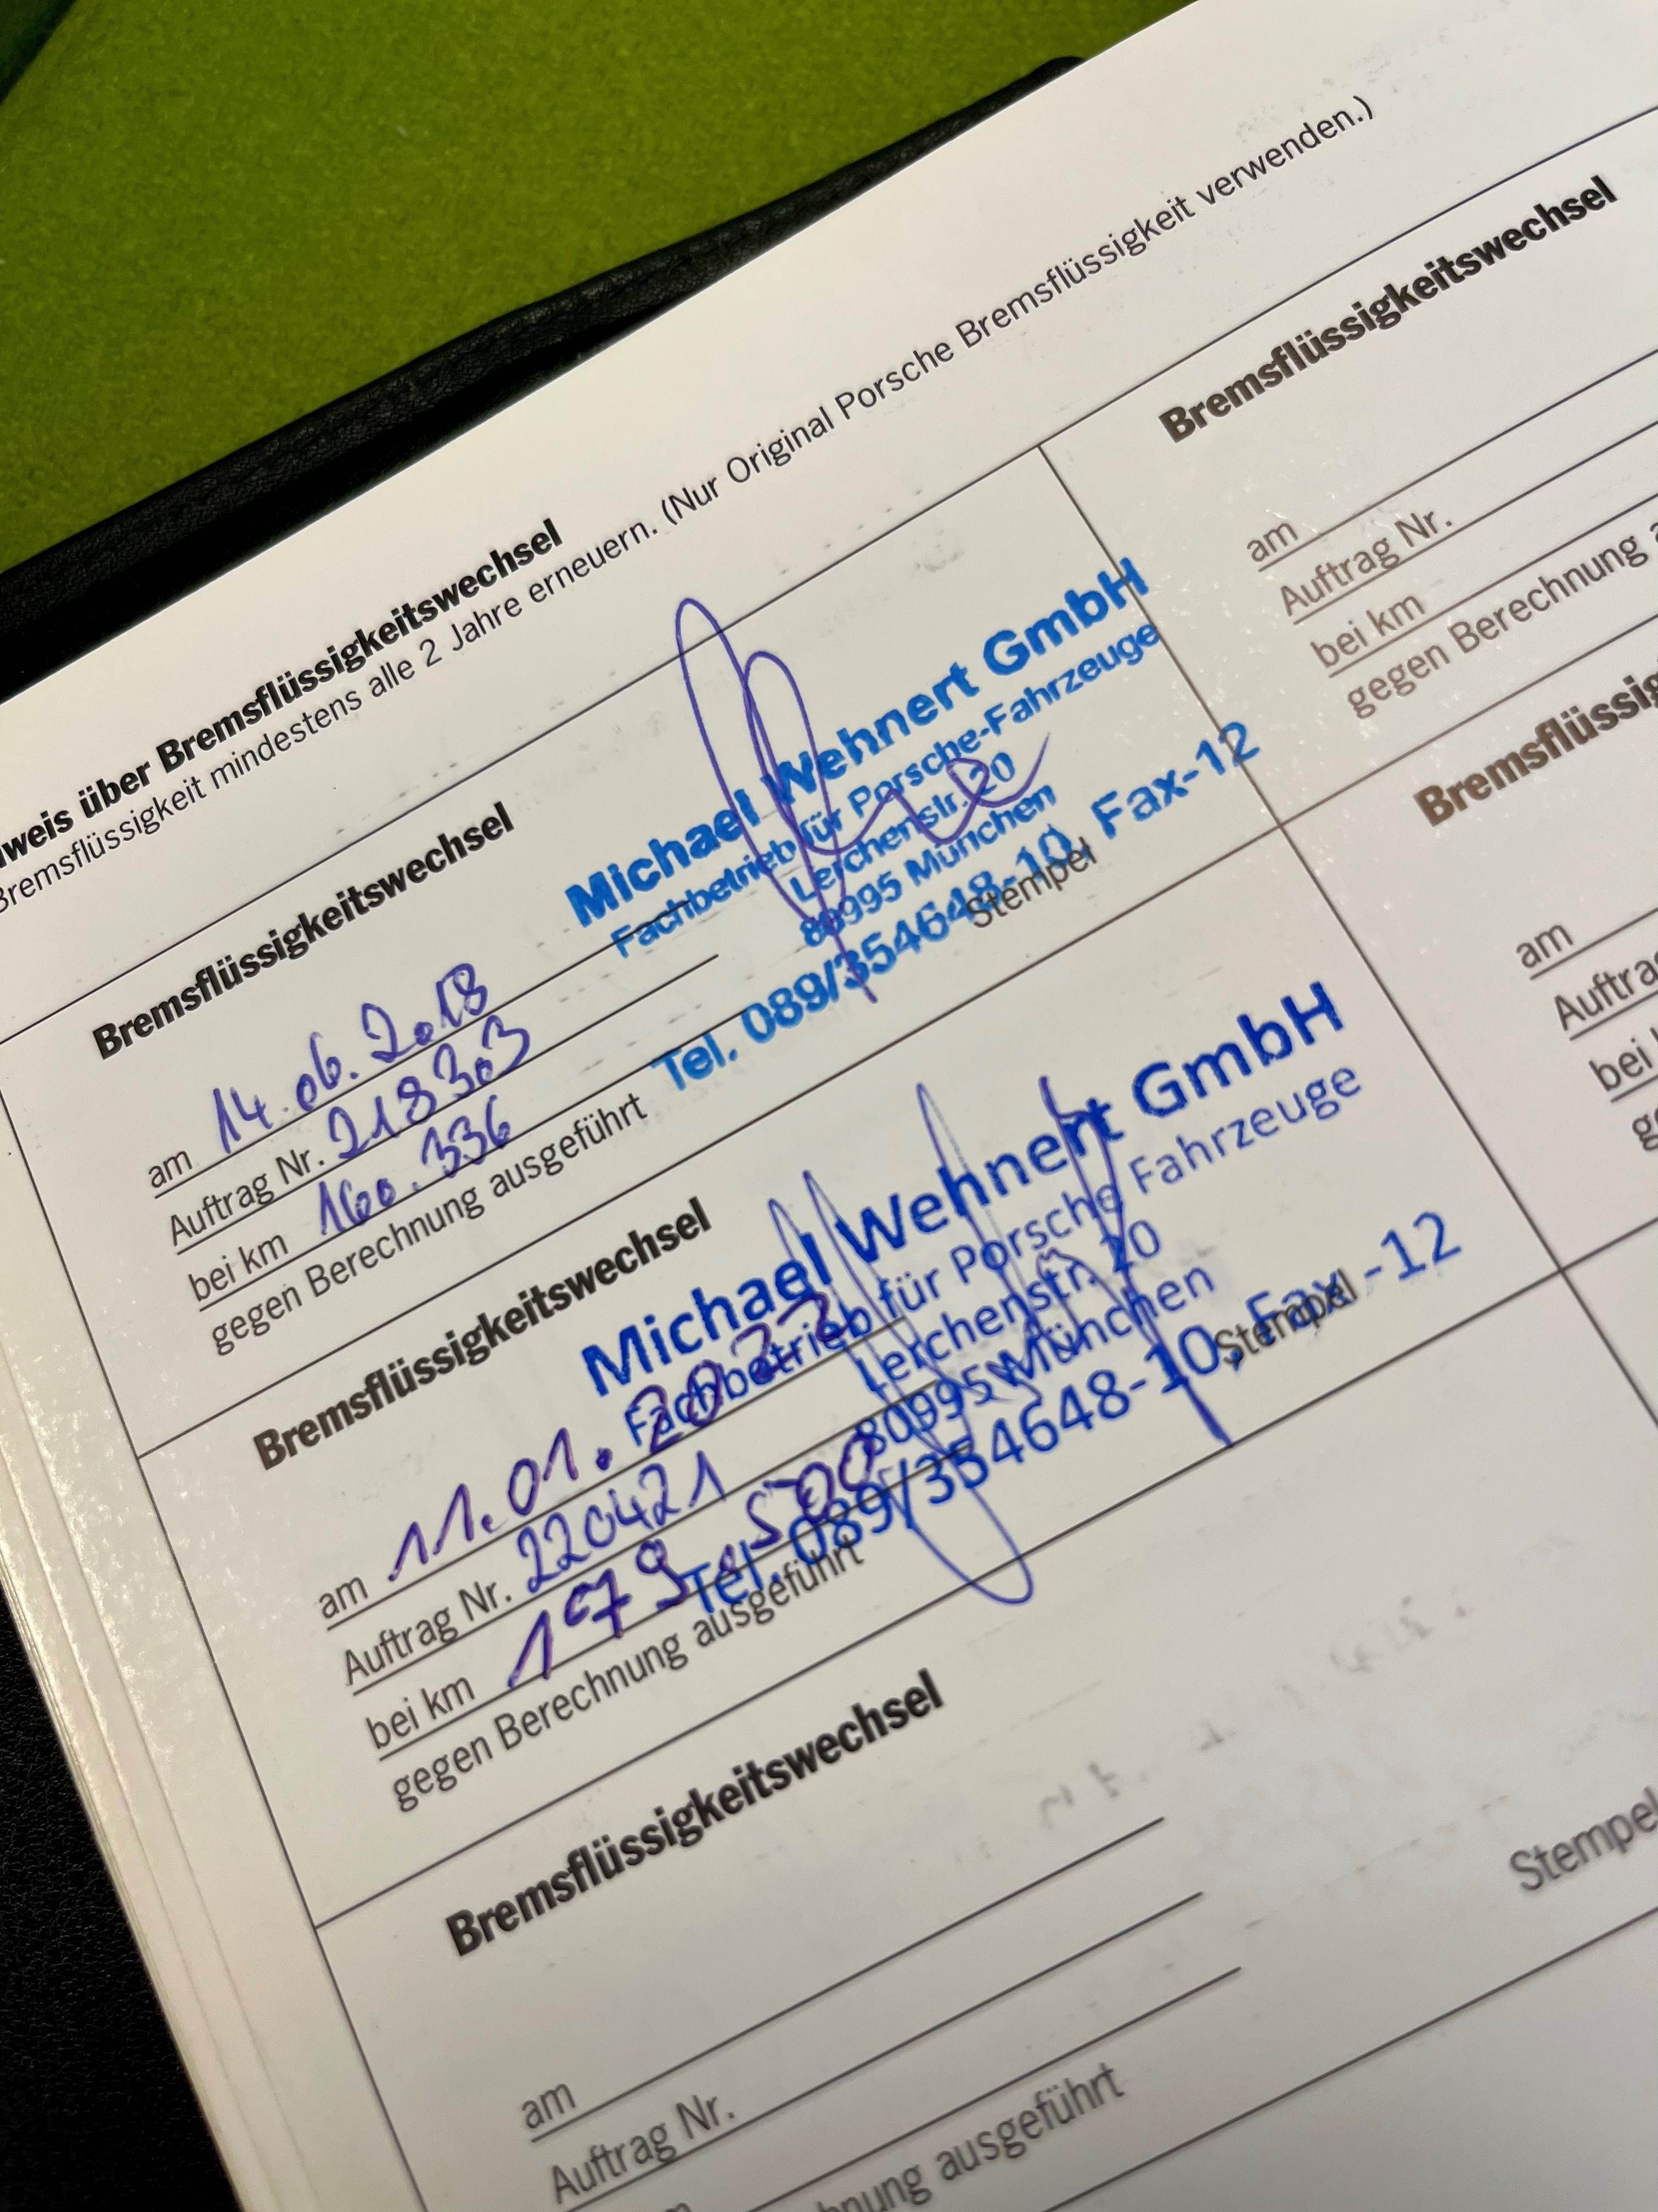 weis über Bremsflüssigkeitswechsel
Bremsflüssigkeit mindestens alle 2 Jahre erneuern. (Nur Original Porsche Bremsflüssigkeit verwenden.)
Bremsflüssigkeitswechsel
am 14.06.2018
Auftrag Nr. 218303
bei km 160.336
gegen Berechnung ausgeführt
Michael Wehnert GmbH
Fachbetrieb für Porsche-Fahrzeuge
Lerchenstr. 20
80995 München
Tel. 089/354648-10, Fax-12
Stempel
Bremsflüssigkeitswechsel
am 11.01.2022
Auftrag Nr. 220421
bei km 179.500
gegen Berechnung ausgeführt
Michael Wehnert GmbH
Fachbetrieb für Porsche Fahrzeuge
Lerchenstr. 20
80995 München
Tel. 089/354648-10, Fax -12
Stempel
Bremsflüssigkeitswechsel
am
Auftrag Nr.
nung ausgeführt
Stempel
Bremsflüssigkeitswechsel
am
Auftrag Nr.
bei km
gegen Berechnung a
Bremsflüssig
am
Auftra
bei
ge